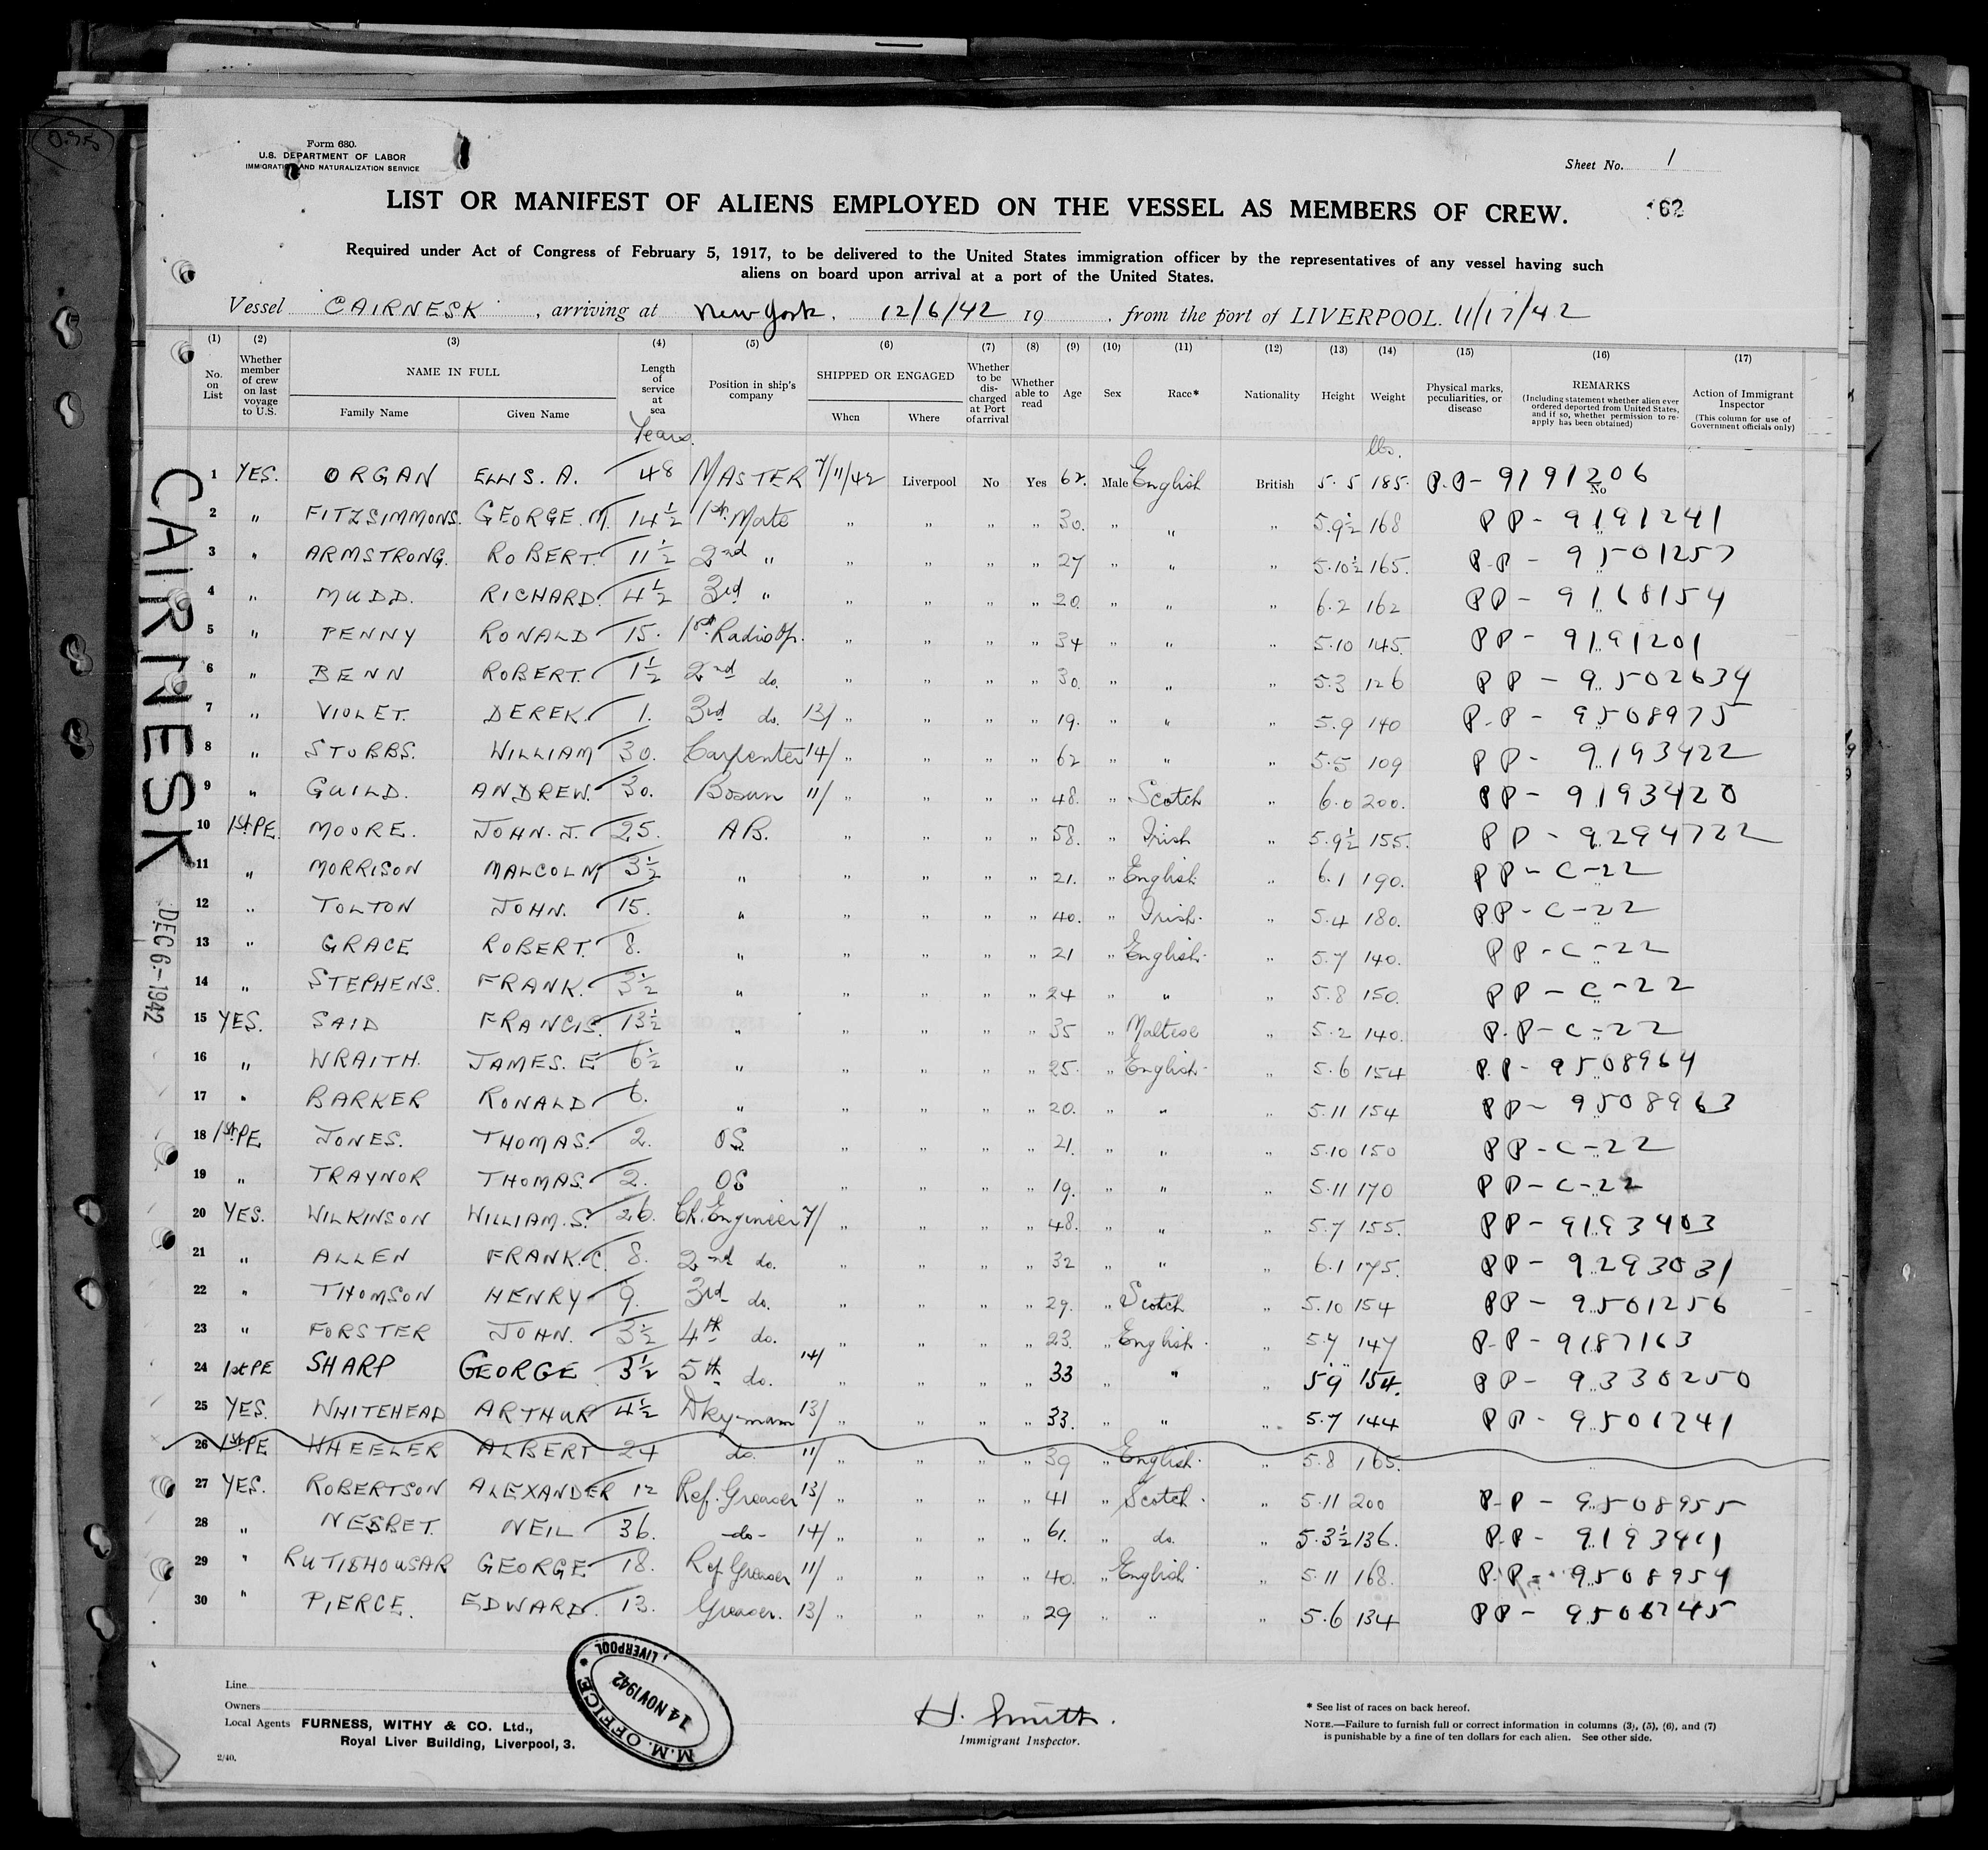 Form 680.
U.S. DEPARTMENT OF LABOR
IMMIGRATION AND NATURALIZATION SERVICE
Sheet No. 1
LIST OR MANIFEST OF ALIENS EMPLOYED ON THE VESSEL AS MEMBERS OF CREW.
162
Required under Act of Congress of February 5, 1917, to be delivered to the United States immigration officer by the representatives of any vessel having such
aliens on board upon arrival at a port of the United States.
Vessel CAIRNESK, arriving at New York. 12/6/42 19 , from the port of LIVERPOOL. 11/17/42
(1) (2) (3) (4) (5) (6) (7) (8) (9) (10) (11) (12) (13) (14) (15) (16) (17)
No. on List
Whether member of crew on last voyage to U.S.
NAME IN FULL
Family Name
Given Name
Length of service at sea
Position in ship's company
SHIPPED OR ENGAGED
When
Where
Whether to be discharged at Port of arrival
Whether able to read
Age
Sex
Race*
Nationality
Height
Weight
Physical marks, peculiarities, or disease
REMARKS
(Including statement whether alien ever ordered deported from United States, and if so, whether permission to re-apply has been obtained)
Action of Immigrant Inspector
(This column for use of Government officials only)
Years.
lbs.
1 YES. ORGAN ELLIS. A. 48 MASTER 7/11/42 Liverpool No Yes 62. Male English British 5.5 185. P.P- 9191206
No
2 " FITZSIMMONS. GEORGE. M. 14½ 1st Mate " " " " 30. " " " 5.9½ 168 PP - 9191241
3 " ARMSTRONG. ROBERT. 11½ 2nd " " " " " 27 " " " 5.10½ 165. P.P - 9501257
4 " MUDD. RICHARD. 4½ 3rd " " " " " 20. " " " 6.2 162 PP - 9168154
5 " PENNY RONALD 15. 1st Radio Op. " " " " 34 " " " 5.10 145. PP - 9191201
6 " BENN ROBERT. 1½ 2nd do. " " " " 30. " " " 5.3 126 PP - 9502634
7 " VIOLET. DEREK. 1. 3rd do. 13/ " " " " 19. " " " 5.9 140 P.P - 9508975
8 " STOBBS. WILLIAM 30. Carpenter 14/ " " " " 62 " " " 5.5 109 PP - 9193422
9 " GUILD. ANDREW. 30. Bosun 11/ " " " " 48. " Scotch " 6.0 200. PP - 9193420
10 1st PE. MOORE. JOHN. J. 25. AB. " " " " 58. " Irish " 5.9½ 155. PP - 9294722
11 " MORRISON MALCOLM 3½ " " " " " 21. " English " 6.1 190. PP - C-22
12 " TOLTON JOHN. 15. " " " " " 40. " Irish. " 5.4 180. PP - C-22
13 " GRACE ROBERT. 8. " " " " " 21 " English. " 5.7 140. PP - C-22
14 " STEPHENS. FRANK. 3½ " " " " " 24 " " " 5.8 150. PP - C-22
15 YES. SAID FRANCIS. 13½ " " " " " 35 " Maltese " 5.2 140. P.P - C-22
16 " WRAITH. JAMES. E 6½ " " " " " 25. " English. " 5.6 154 P.P - 9508964
17 " BARKER RONALD 6. " " " " " 20. " " " 5.11 154 PP - 9508963
18 1st PE JONES. THOMAS. 2. OS. " " " " 21. " " " 5.10 150 PP - C-22
19 " TRAYNOR THOMAS. 2. OS " " " " 19. " " " 5.11 170 PP - C-22
20 YES. WILKINSON WILLIAM. S. 26. Ch. Engineer 7/ " " " " 48. " " " 5.7 155. PP - 9193403
21 " ALLEN FRANK. C. 8. 2nd do. " " " " 32 " " " 6.1 175. PP - 9293031
22 " THOMSON HENRY 9. 3rd do. " " " " 29. " Scotch " 5.10 154 PP - 9501256
23 " FORSTER JOHN. 3½ 4th do. " " " " 23. " English. " 5.7 147 P.P - 9187163
24 1st PE SHARP GEORGE 3½ 5th do. 14/ " " " " 33 " " " 5.9 154. PP - 9330250
25 YES. WHITEHEAD ARTHUR 4½ Dkyman 13/ " " " " 33. " " " 5.7 144 PP - 9501241
26 1st PE WHEELER ALBERT 24 do. 11/ " " " " 39 " English. " 5.8 165.
27 YES. ROBERTSON ALEXANDER 12 Ref. Greaser 13/ " " " " 41 " Scotch. " 5.11 200 P.P - 9508955
28 " NESBET. NEIL 36. -do- 14/ " " " " 61. " do. " 5.3½ 136. P.P - 9193411
29 " RUTISHOUSAR GEORGE 18. Ref Greaser 11/ " " " " 40. " English " 5.11 168. P.P - 9508954
30 " PIERCE. EDWARD. 13. Greaser. 13/ " " " " 29 " " " 5.6 134 PP - 9506745
CAIRNESK
DEC 6-1942
Line
Owners
Local Agents FURNESS, WITHY & CO. Ltd.,
Royal Liver Building, Liverpool, 3.
2/40.
M.M. OFFICE * LIVERPOOL
14 NOV 1942
H. Smith.
Immigrant Inspector.
* See list of races on back hereof.
NOTE.—Failure to furnish full or correct information in columns (3), (5), (6), and (7)
is punishable by a fine of ten dollars for each alien. See other side.